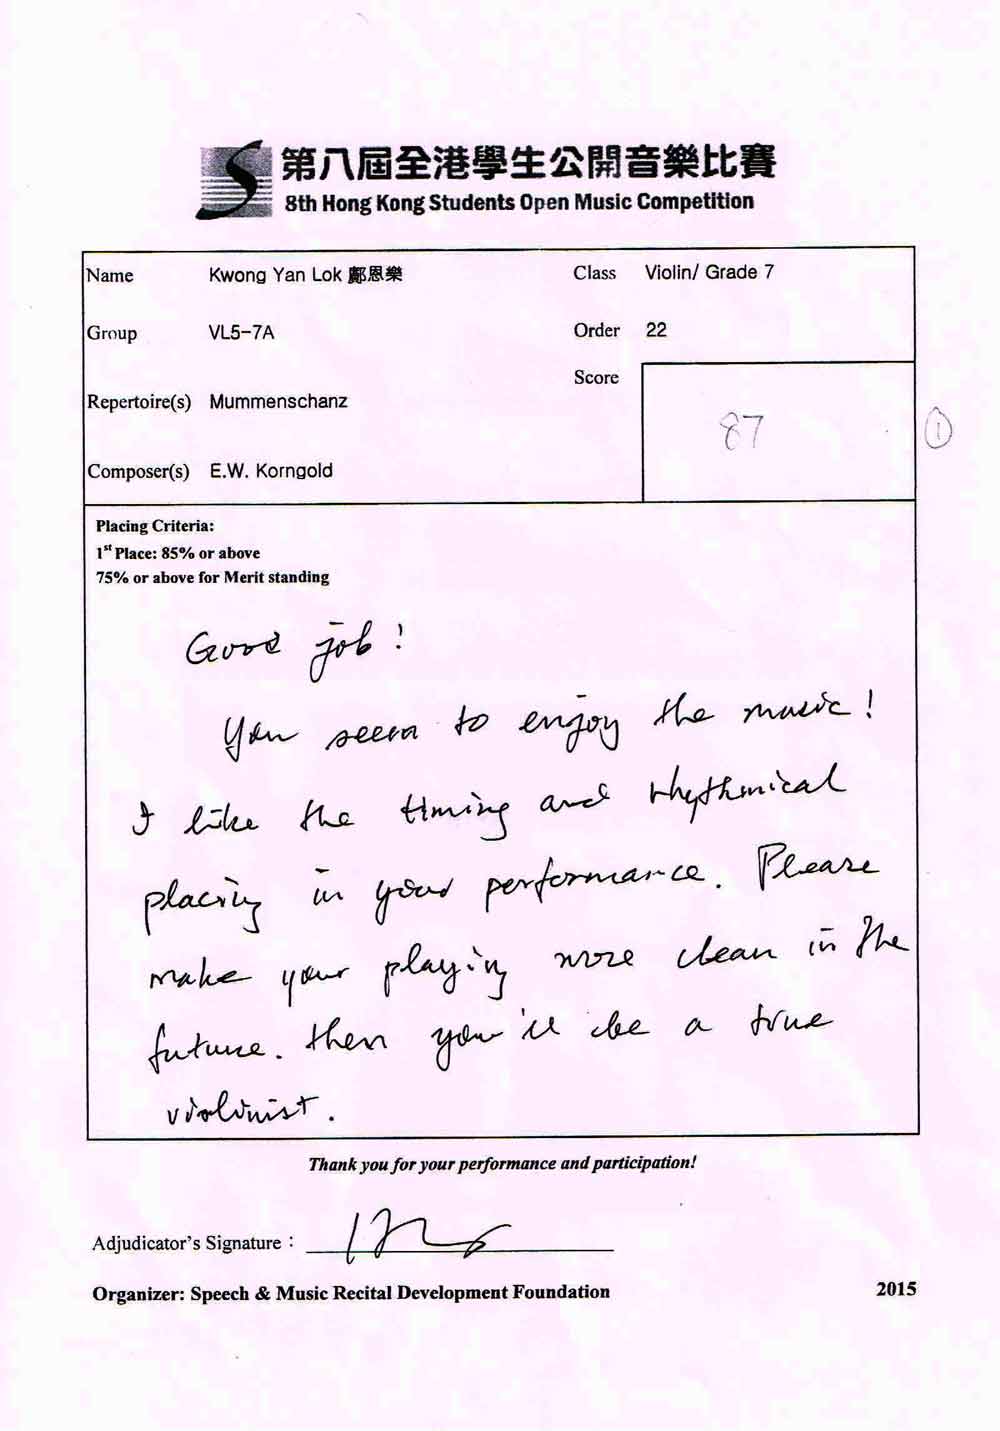 第八屆全港學生公開音樂比賽
8th Hong Kong Students Open Music Competition
Name Kwong Yan Lok 鄺恩樂 Class Violin/ Grade 7
Group VL5-7A Order 22
Score
87
1
Repertoire(s) Mummenschanz
Composer(s) E.W. Korngold
Placing Criteria:
1st Place: 85% or above
75% or above for Merit standing
Good job!
You seem to enjoy the music!
I like the timing and rhythmical
placing in your performance. Please
make your playing more clean in the
future. then you'll be a true
violinist.
Thank you for your performance and participation!
Adjudicator's Signature :
Organizer: Speech & Music Recital Development Foundation 2015